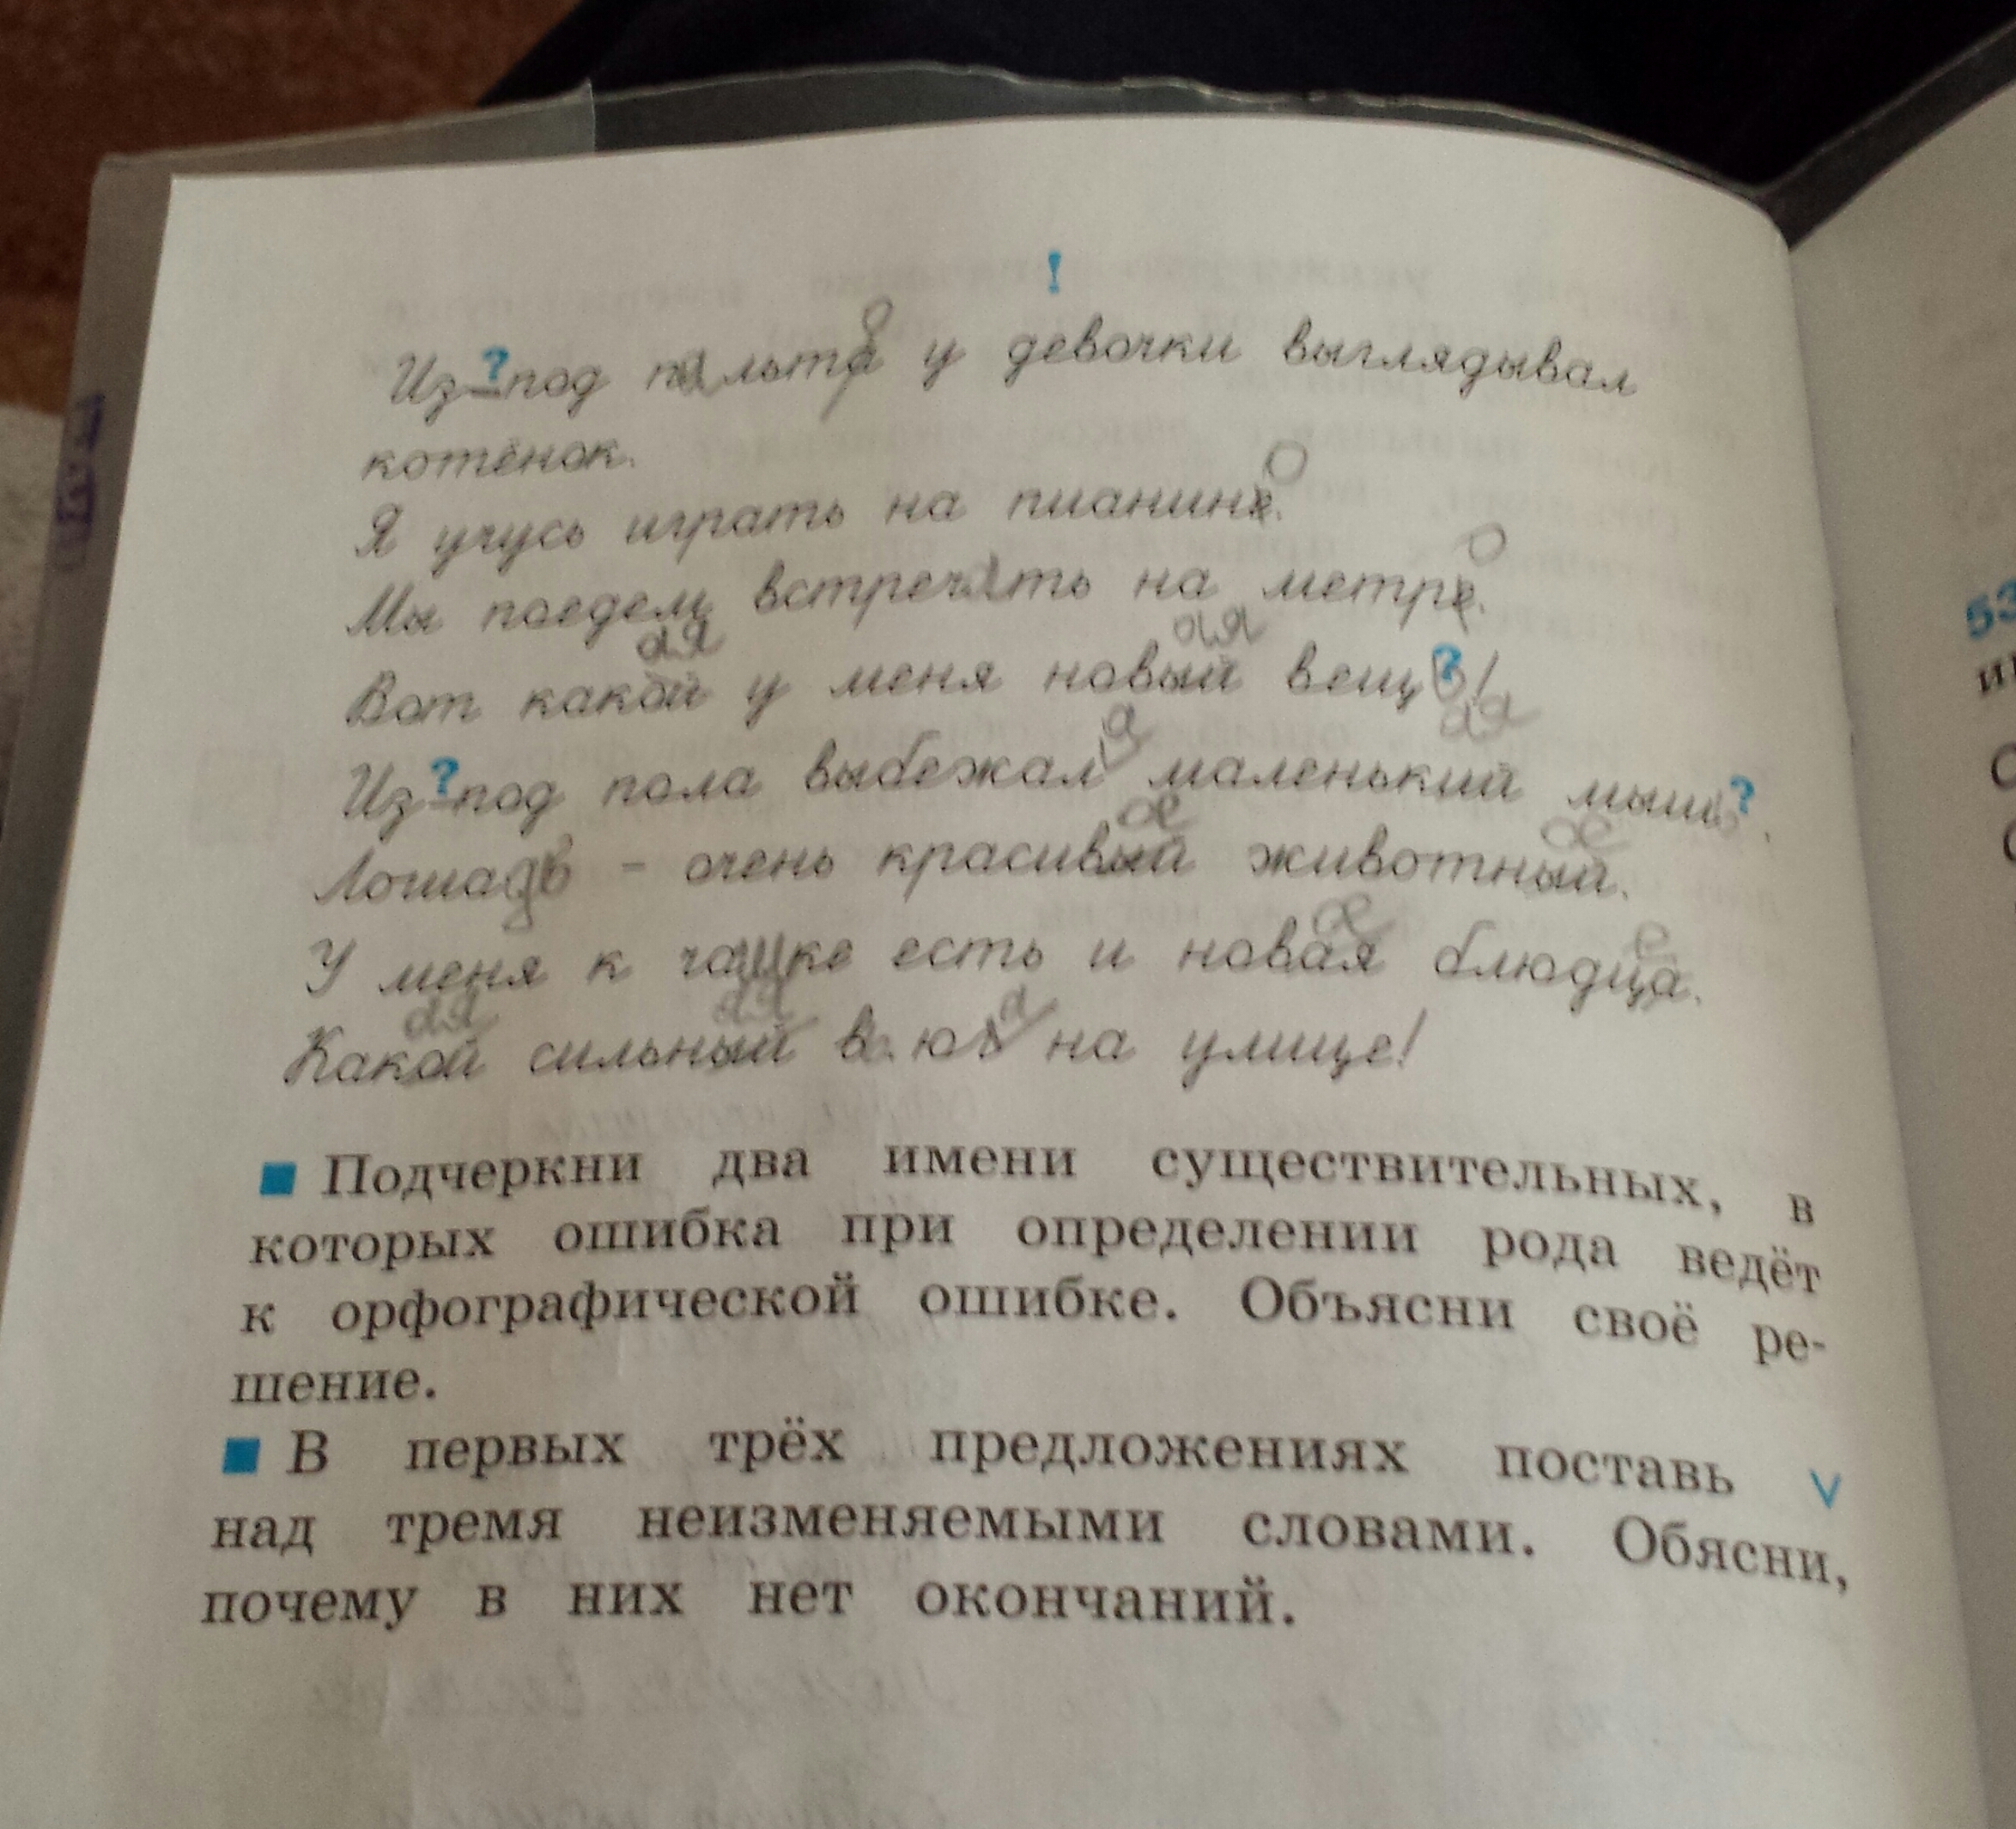 !
Из-?под пальта о у девочки выглядывал
котёнок.
Я учусь играть на пианине. о
Мы поедем встречать на метре. о
Вот какой ая у меня новый ая вещь?!
Из-?под пола выбежал а маленький ая мышь?.
Лошадь – очень красивый ое животный ое.
У меня к чашке есть и новая ое блюдца е.
Какой ая сильный ая в.юг а на улице!
■ Подчеркни два имени существительных, в
которых ошибка при определении рода ведёт
к орфографической ошибке. Объясни своё ре-
шение.
■ В первых трёх предложениях поставь V
над тремя неизменяемыми словами. Обясни,
почему в них нет окончаний.
53